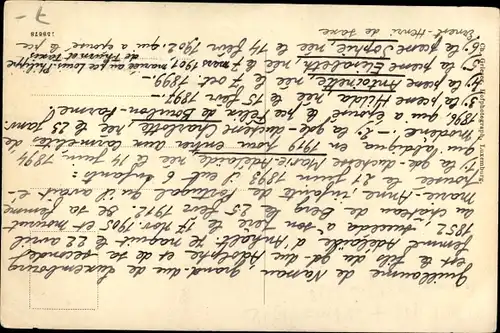 Guillaume de Nassau, grand-duc de Luxembourg
est le fils du gd-duc Adolphe et de sa seconde
femme Adélaïde d'Anhalt. Il naquit le 22 avril
1852, succéda à son père le 17 nov 1905 et mourut
au château de Berg le 25 févr 1912. De sa femme
Marie-Anne, infante de Portugal qu'il avait é-
pousée le 21 juin 1893 il eut 6 enfants:
1.° la gde-duchesse Marie-Adélaïde née le 14 juin 1894
qui abdiqua en 1919 pour entrer aux carmélites de
Modène – 2.° la gde-duchesse Charlotte née le 23 janv
1896, qui a épousé le pce Félix de Bourbon-Parme.
3.° la pcesse Hilda née le 15 févr 1897 –
4.° la pcesse Antoinette, née le 7 oct 1899 –
5.° la pcesse Elisabeth née le 7 mars 1901 mariée au pce Louis-Philippe
de Thurn et Taxis
6.° la pcesse Sophie, née le 14 févr 1902, qui a épousé le pce
Ernest-Henri de Saxe
Luxemburg.